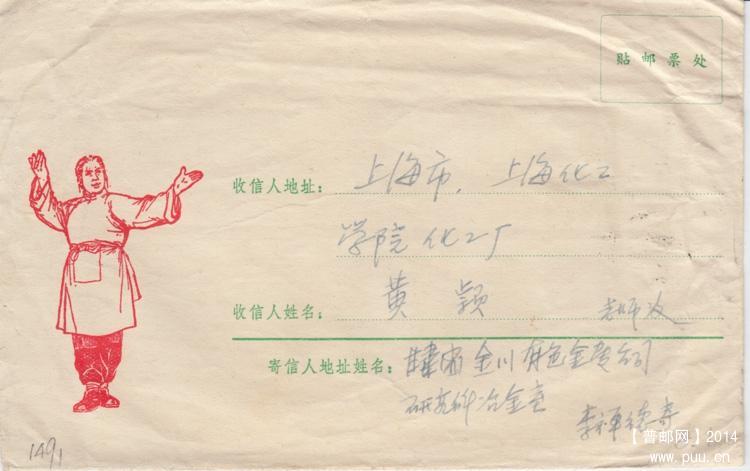 贴邮票处
收信人地址: 上海市, 上海化工
学院化工厂
收信人姓名: 黄颖 老师收
寄信人地址姓名: 甘肃省金川有色金属公司
研究所冶金室
李 寄
149,
【普邮网】2014
www.puu.cn